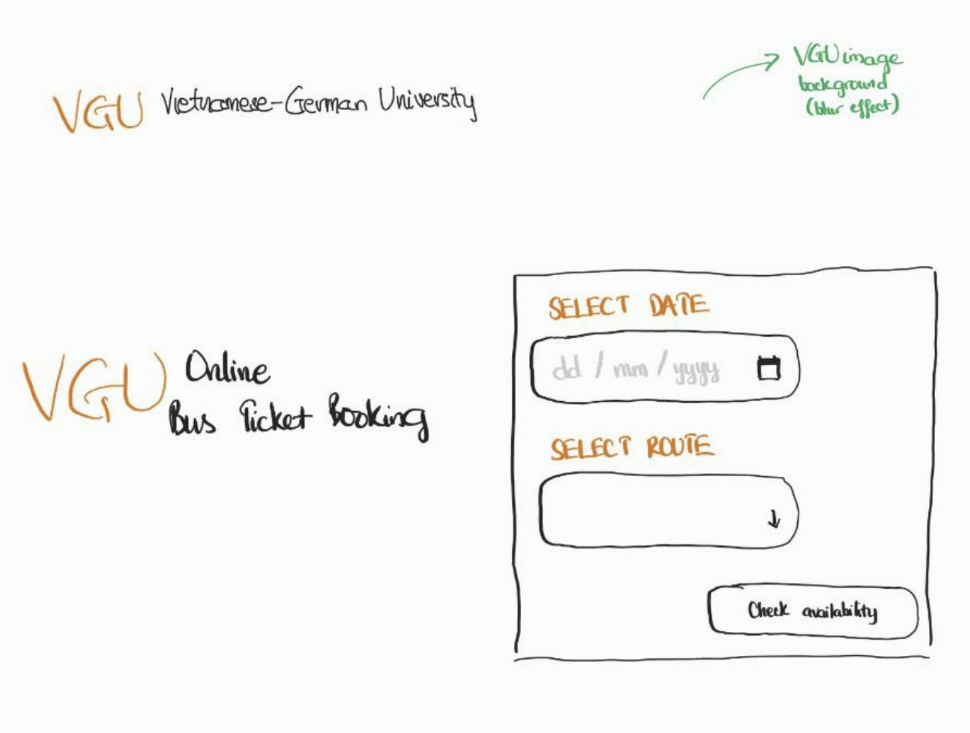 VGU Vietnamese-German University
VGU image
background
(blur effect)
VGU Online
Bus Ticket Booking
SELECT DATE
dd / mm / yyyy
SELECT ROUTE
Check availability